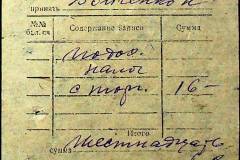 принять
№№ Содержание записи Сумма
Подох.
налог
с торг. 16-
Итого
сумма Шестнадцать